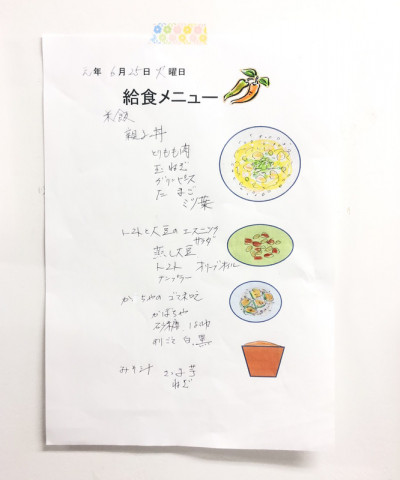 元年 6月25日 火曜日
給食メニュー
米飯
親子丼
とりもも肉
玉ねぎ
グリンピース
たまご
ミツ葉
トマトと大豆のエスニック
サラダ
蒸し大豆
トマト オリーブオイル
ナンプラー
かぼちゃのごま味噌
かぼちゃ
砂糖
すりごま 白、黒
みそ汁 さつま芋
ねぎ